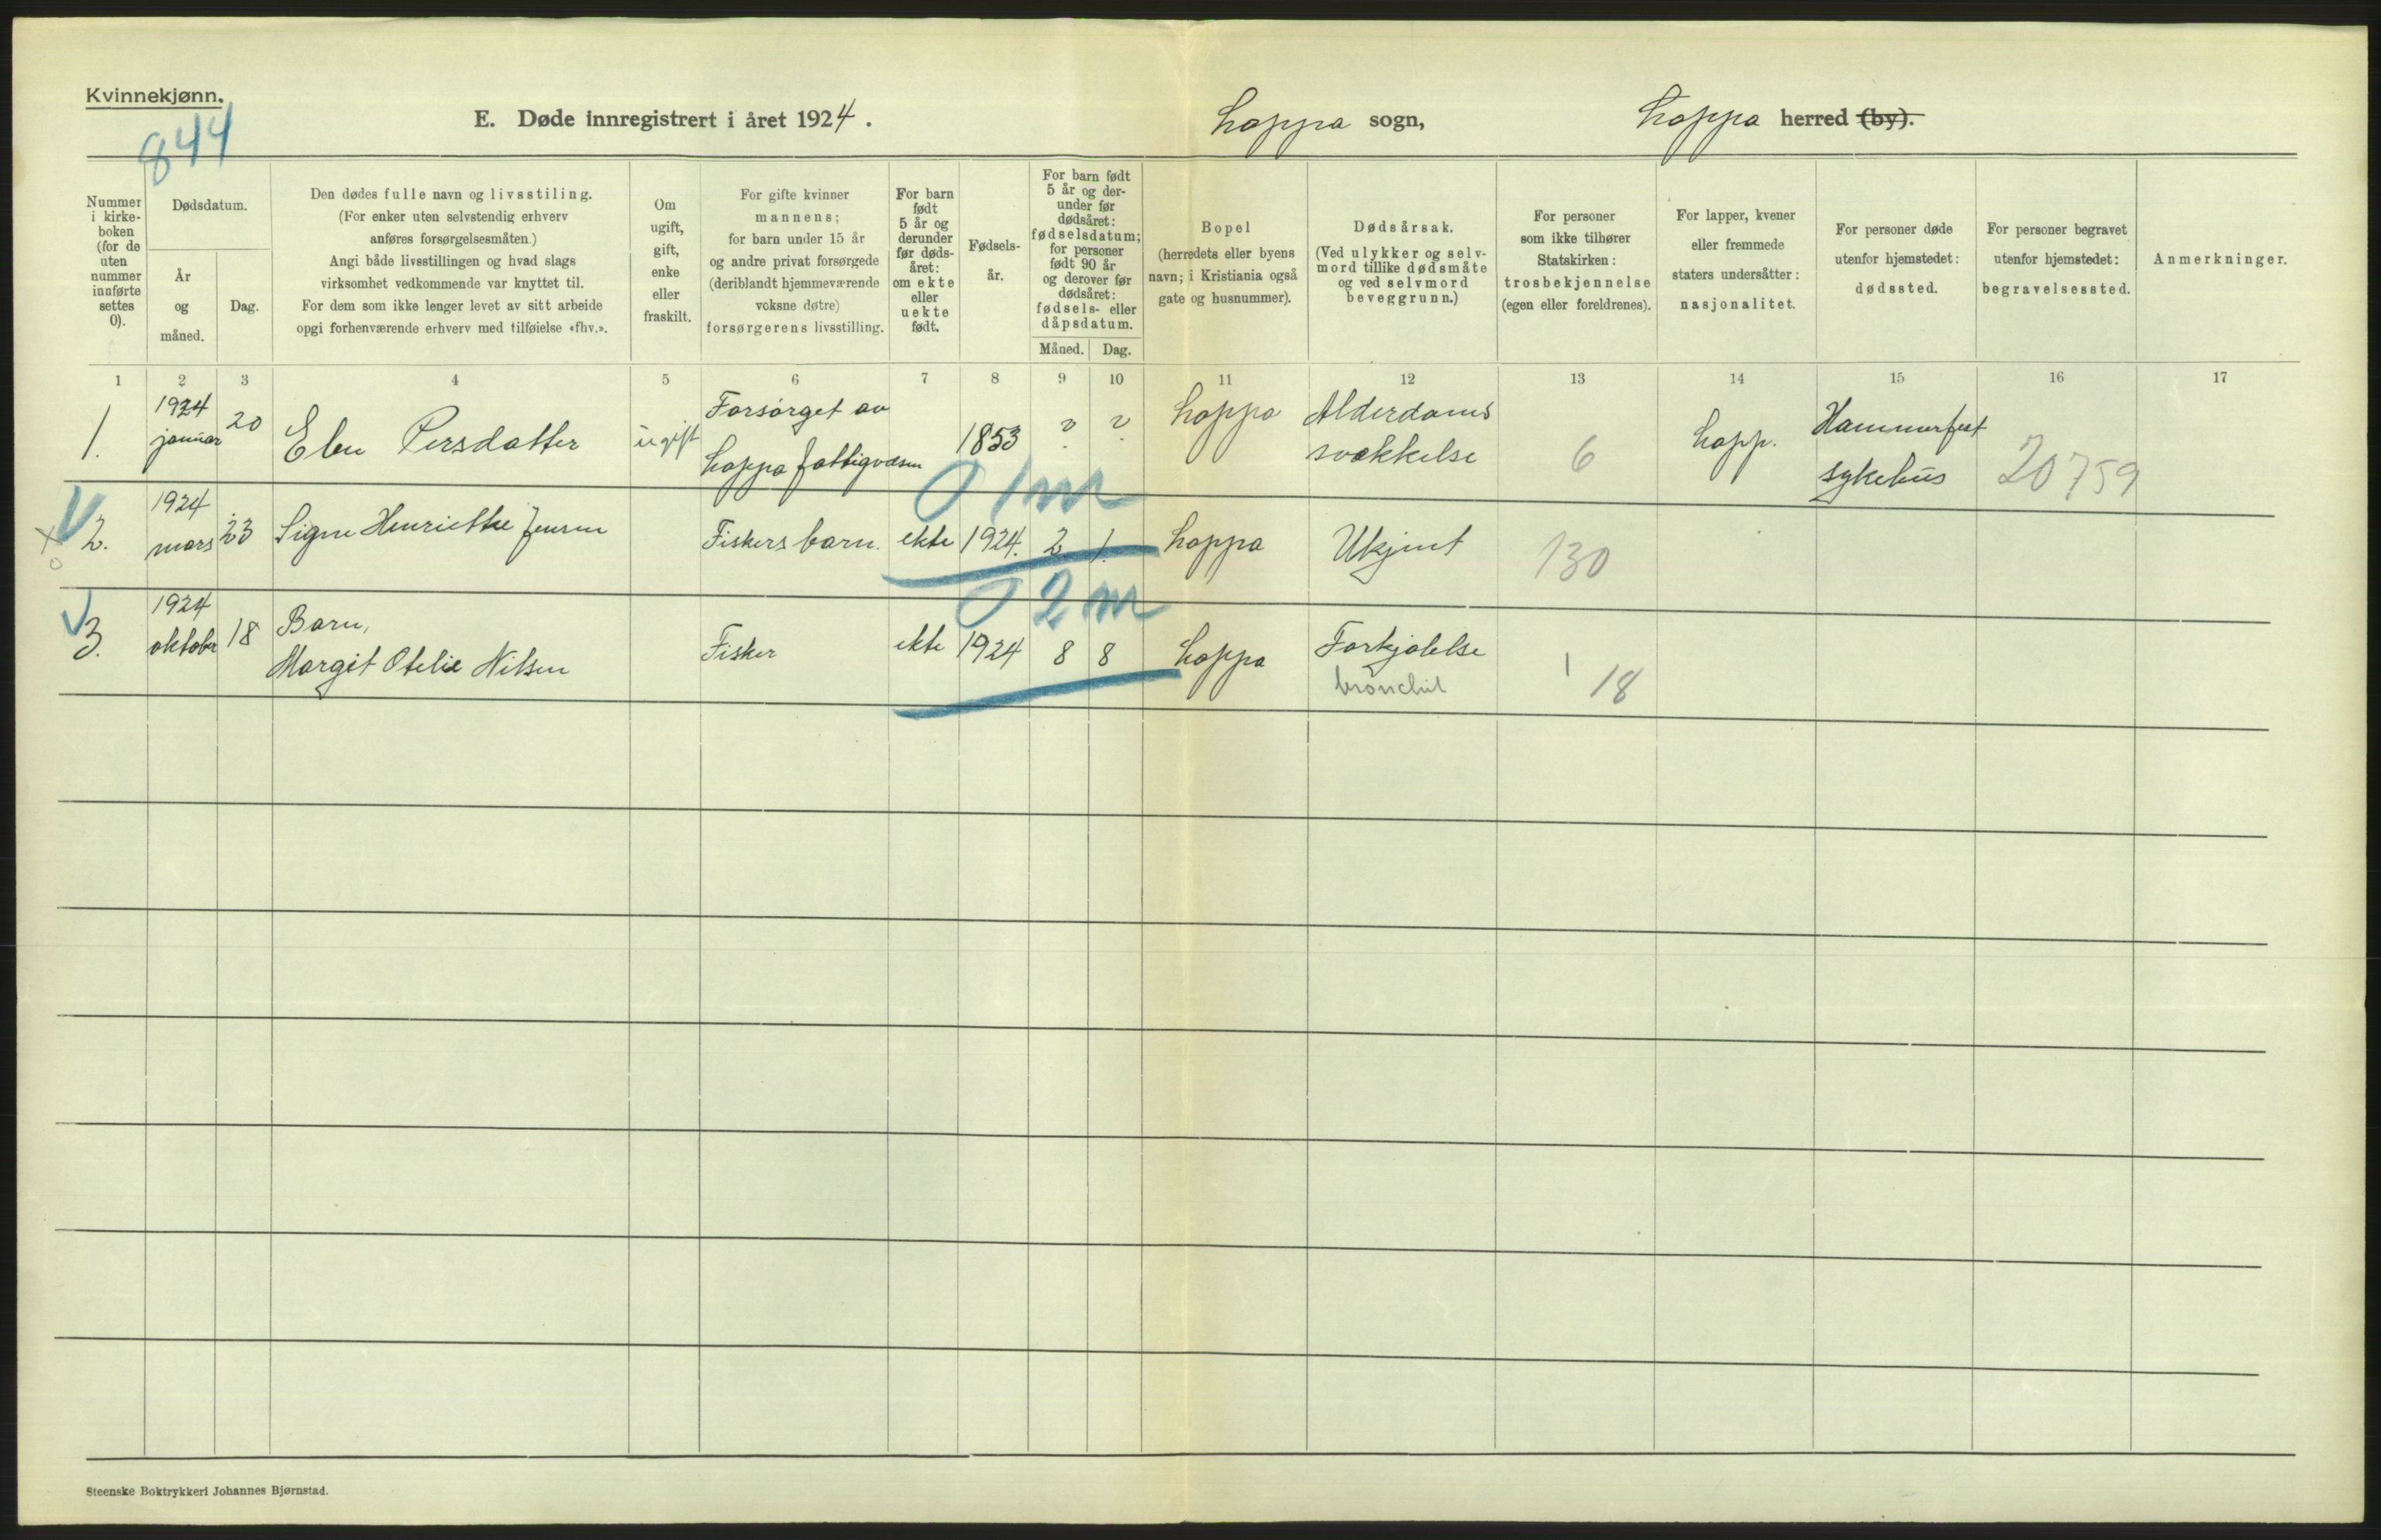 Kvinnekjønn.
844
E. Døde innregistrert i året 1924.
Loppa sogn,
Loppa herred (by).
Nummer i kirke-
boken
(for de
uten
nummer
innførte
settes
0).
Dødsdatum.
År
og
måned.
Dag.
Den dødes fulle navn og livsstiling.
(For enker uten selvstendig erhverv
anføres forsørgelsesmåten.)
Angi både livsstillingen og hvad slags
virksomhet vedkommende var knyttet til.
For dem som ikke lenger levet av sitt arbeide
opgi forhenværende erhverv med tilføielse «fhv.».
Om
ugift,
gift,
enke
eller
fraskilt.
For gifte kvinner
mannens;
for barn under 15 år
og andre privat forsørgede
(deriblandt hjemmeværende
voksne døtre)
forsørgerens livsstilling.
For barn
født
5 år og
derunder
før døds-
året:
om ekte
eller
uekte
født.
Fødsels-
år.
For barn født
5 år og der-
under før
dødsåret:
fødselsdatum;
for personer
født 90 år
og derover før
dødsåret:
fødsels- eller
dåpsdatum.
Måned. Dag.
Bopel
(herredets eller byens
navn; i Kristiania også
gate og husnummer).
Dødsårsak.
(Ved ulykker og selv-
mord tillike dødsmåte
og ved selvmord
beveggrunn.)
For personer
som ikke tilhører
Statskirken:
trosbekjennelse
(egen eller foreldrenes).
For lapper, kvener
eller fremmede
staters undersåtter:
nasjonalitet.
For personer døde
utenfor hjemstedet:
dødssted.
For personer begravet
utenfor hjemstedet:
begravelsessted.
Anmerkninger.
1 2 3 4 5 6 7 8 9 10 11 12 13 14 15 16 17
1. 1924 januar 20 Elen Persdatter ugift Forsørget av
Loppa fattigvæsen 1853 ? ? Loppa Alderdoms
svækkelse 6 Lapp. Hammerfest
sykehus 20759
0 1 m
2. 1924 mars 23 Signe Henriette Jensen Fiskers barn. ekte 1924. 2 1. Loppa Ukjent 130
0 2 m
3. 1924 oktober 18 Barn,
Margit Otelie Nilsen Fisker ekte 1924 8 8 Loppa Forkjølelse
bronchit 1 18
Steenske Boktrykkeri Johannes Bjørnstad.